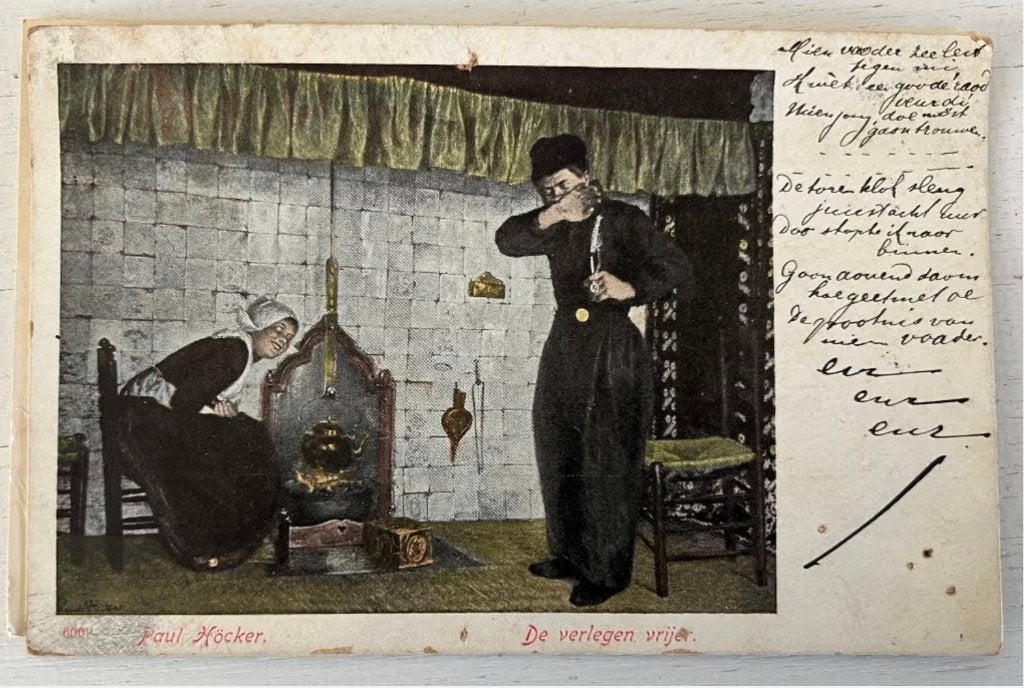 Mien vaoder zee lest
tegen mie
'k wiet 'ne goode raod
veur dij
Mien jong doe most
gaon trouwen.
De toren klok sleug
juist acht uur
Doo stapte ik naor
binnen.
Gaon aovend saom
hoe geet met oe
De grootnis van
mien vaoder.
enz
enz
enz
600
Paul Höcker.
De verlegen vrijer.